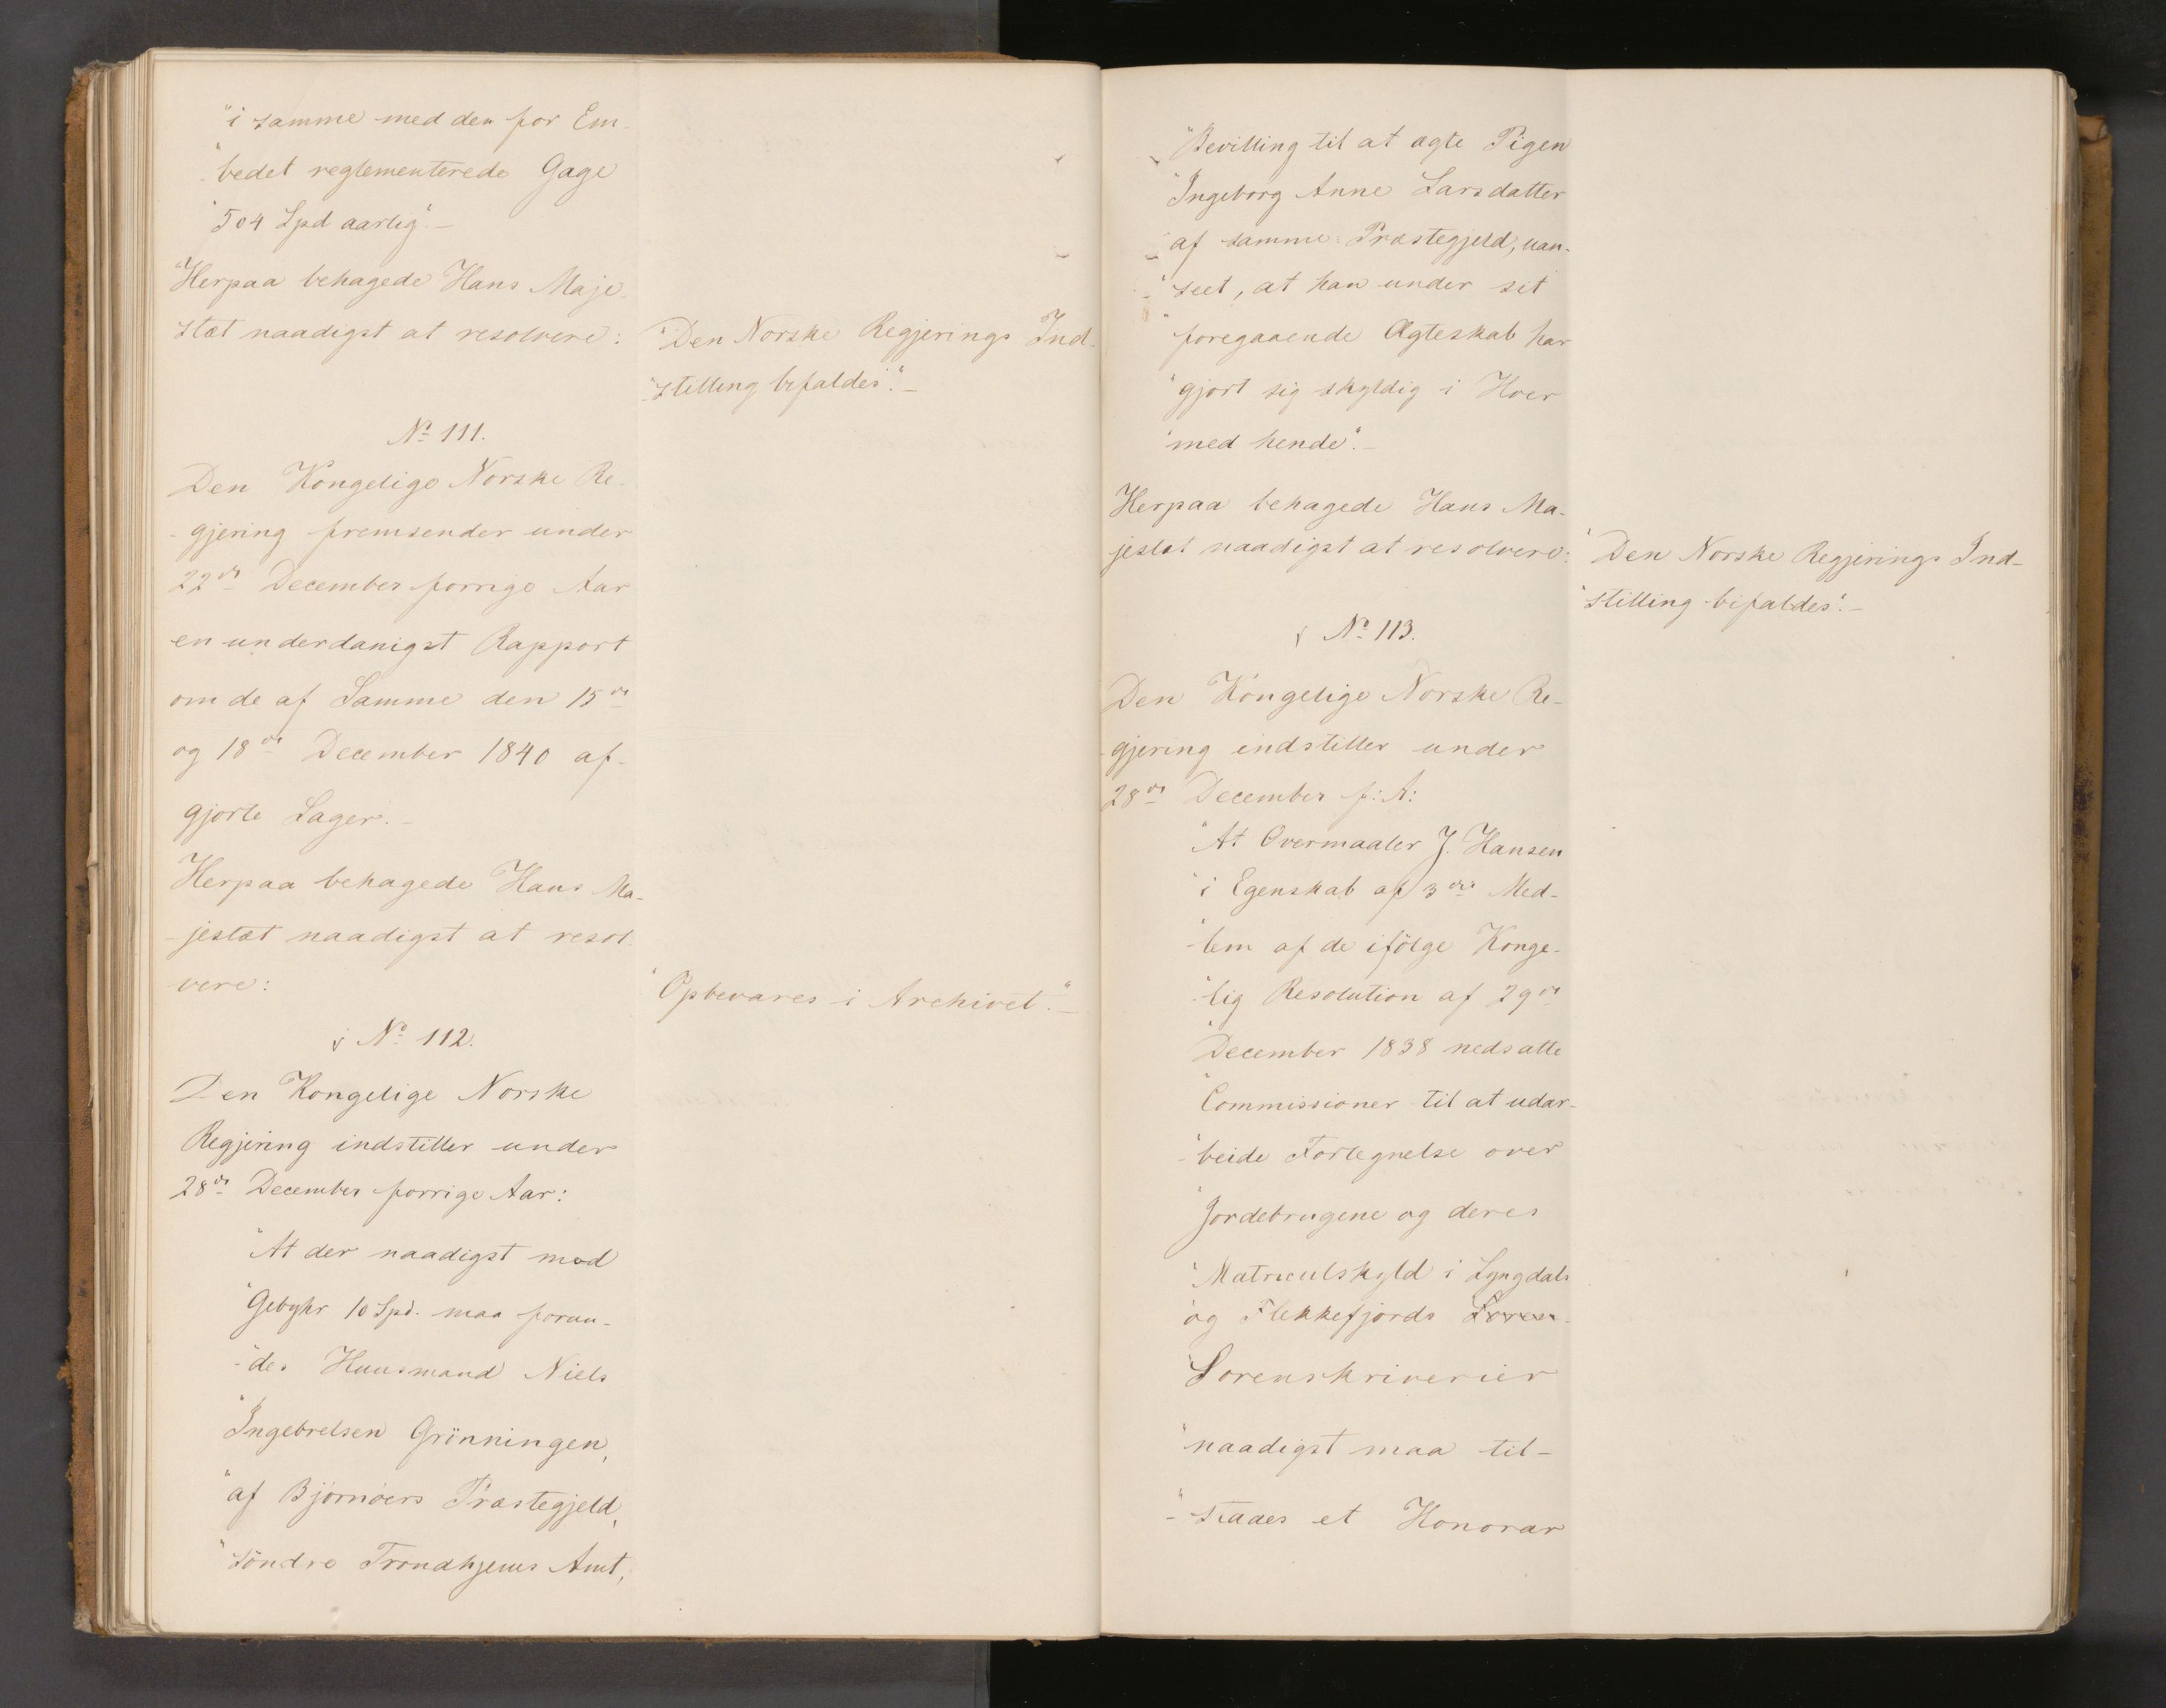 "i samme med den for Em-
"bedet reglementerede Gage
"504 Spd aarlig".-
Herpaa behagede Hans Maje-
stæt naadigst at resolvere:
"Den Norske Regjerings Ind-
"stilling bifaldes".-
No 111.
Den Kongelige Norske Re-
-gjering fremsender under
22de December forrige Aar
en underdanigst Rapport
om de af Samme den 15de
og 18de December 1840 af-
gjorte Sager.-
Herpaa behagede Hans Ma-
-jestæt naadigst at resol-
vere:
"Opbevares i Archivet".-
No 112.
Den Kongelige Norske
Regjering indstiller under
28de December forrige Aar:
"At der naadigst mod
"Gebyhr 10 Spd. maa forun-
-"des Huusmand Niels
"Ingebretsen Grönningen,
"af Björnöers Præstegjeld,
"söndre Trondhjems Amt,
"Bevilling til at ægte Pigen
"Ingeborg Anne Larsdatter
"af samme Præstegjeld, uan-
-"seet, at han under sit
"foregaaende Ægteskab har
"gjort sig skyldig i Hoer
"med hende".-
Herpaa behagede Hans Ma-
jestæt naadigst at resolvere:
"Den Norske Regjerings Ind-
"stilling bifaldes".-
No 113.
Den Kongelige Norske Re-
-gjering indstiller under
28de December f: A:
"At Overmaaler J. Hansen
"i Egenskab af 3die Med-
-"lem af de ifölge Konge-
-"lig Resolution af 29de
"December 1838 nedsatte
"Commissioner til at udar-
-"beide Fortegnelse over
"Jordebrugene og deres
"Matriculskyld i Lyngdals
"og Flekkefjords Soren-
"Sorenskriverier
"naadigst maa til-
-"staaes et Honorar